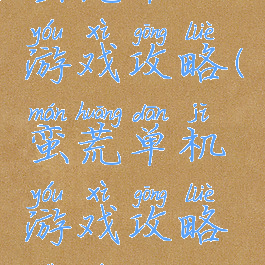 yóu xì gōng lüè
游戏攻略(
mán huāng dān jī
蛮荒单机
yóu xì gōng lüè
游戏攻略